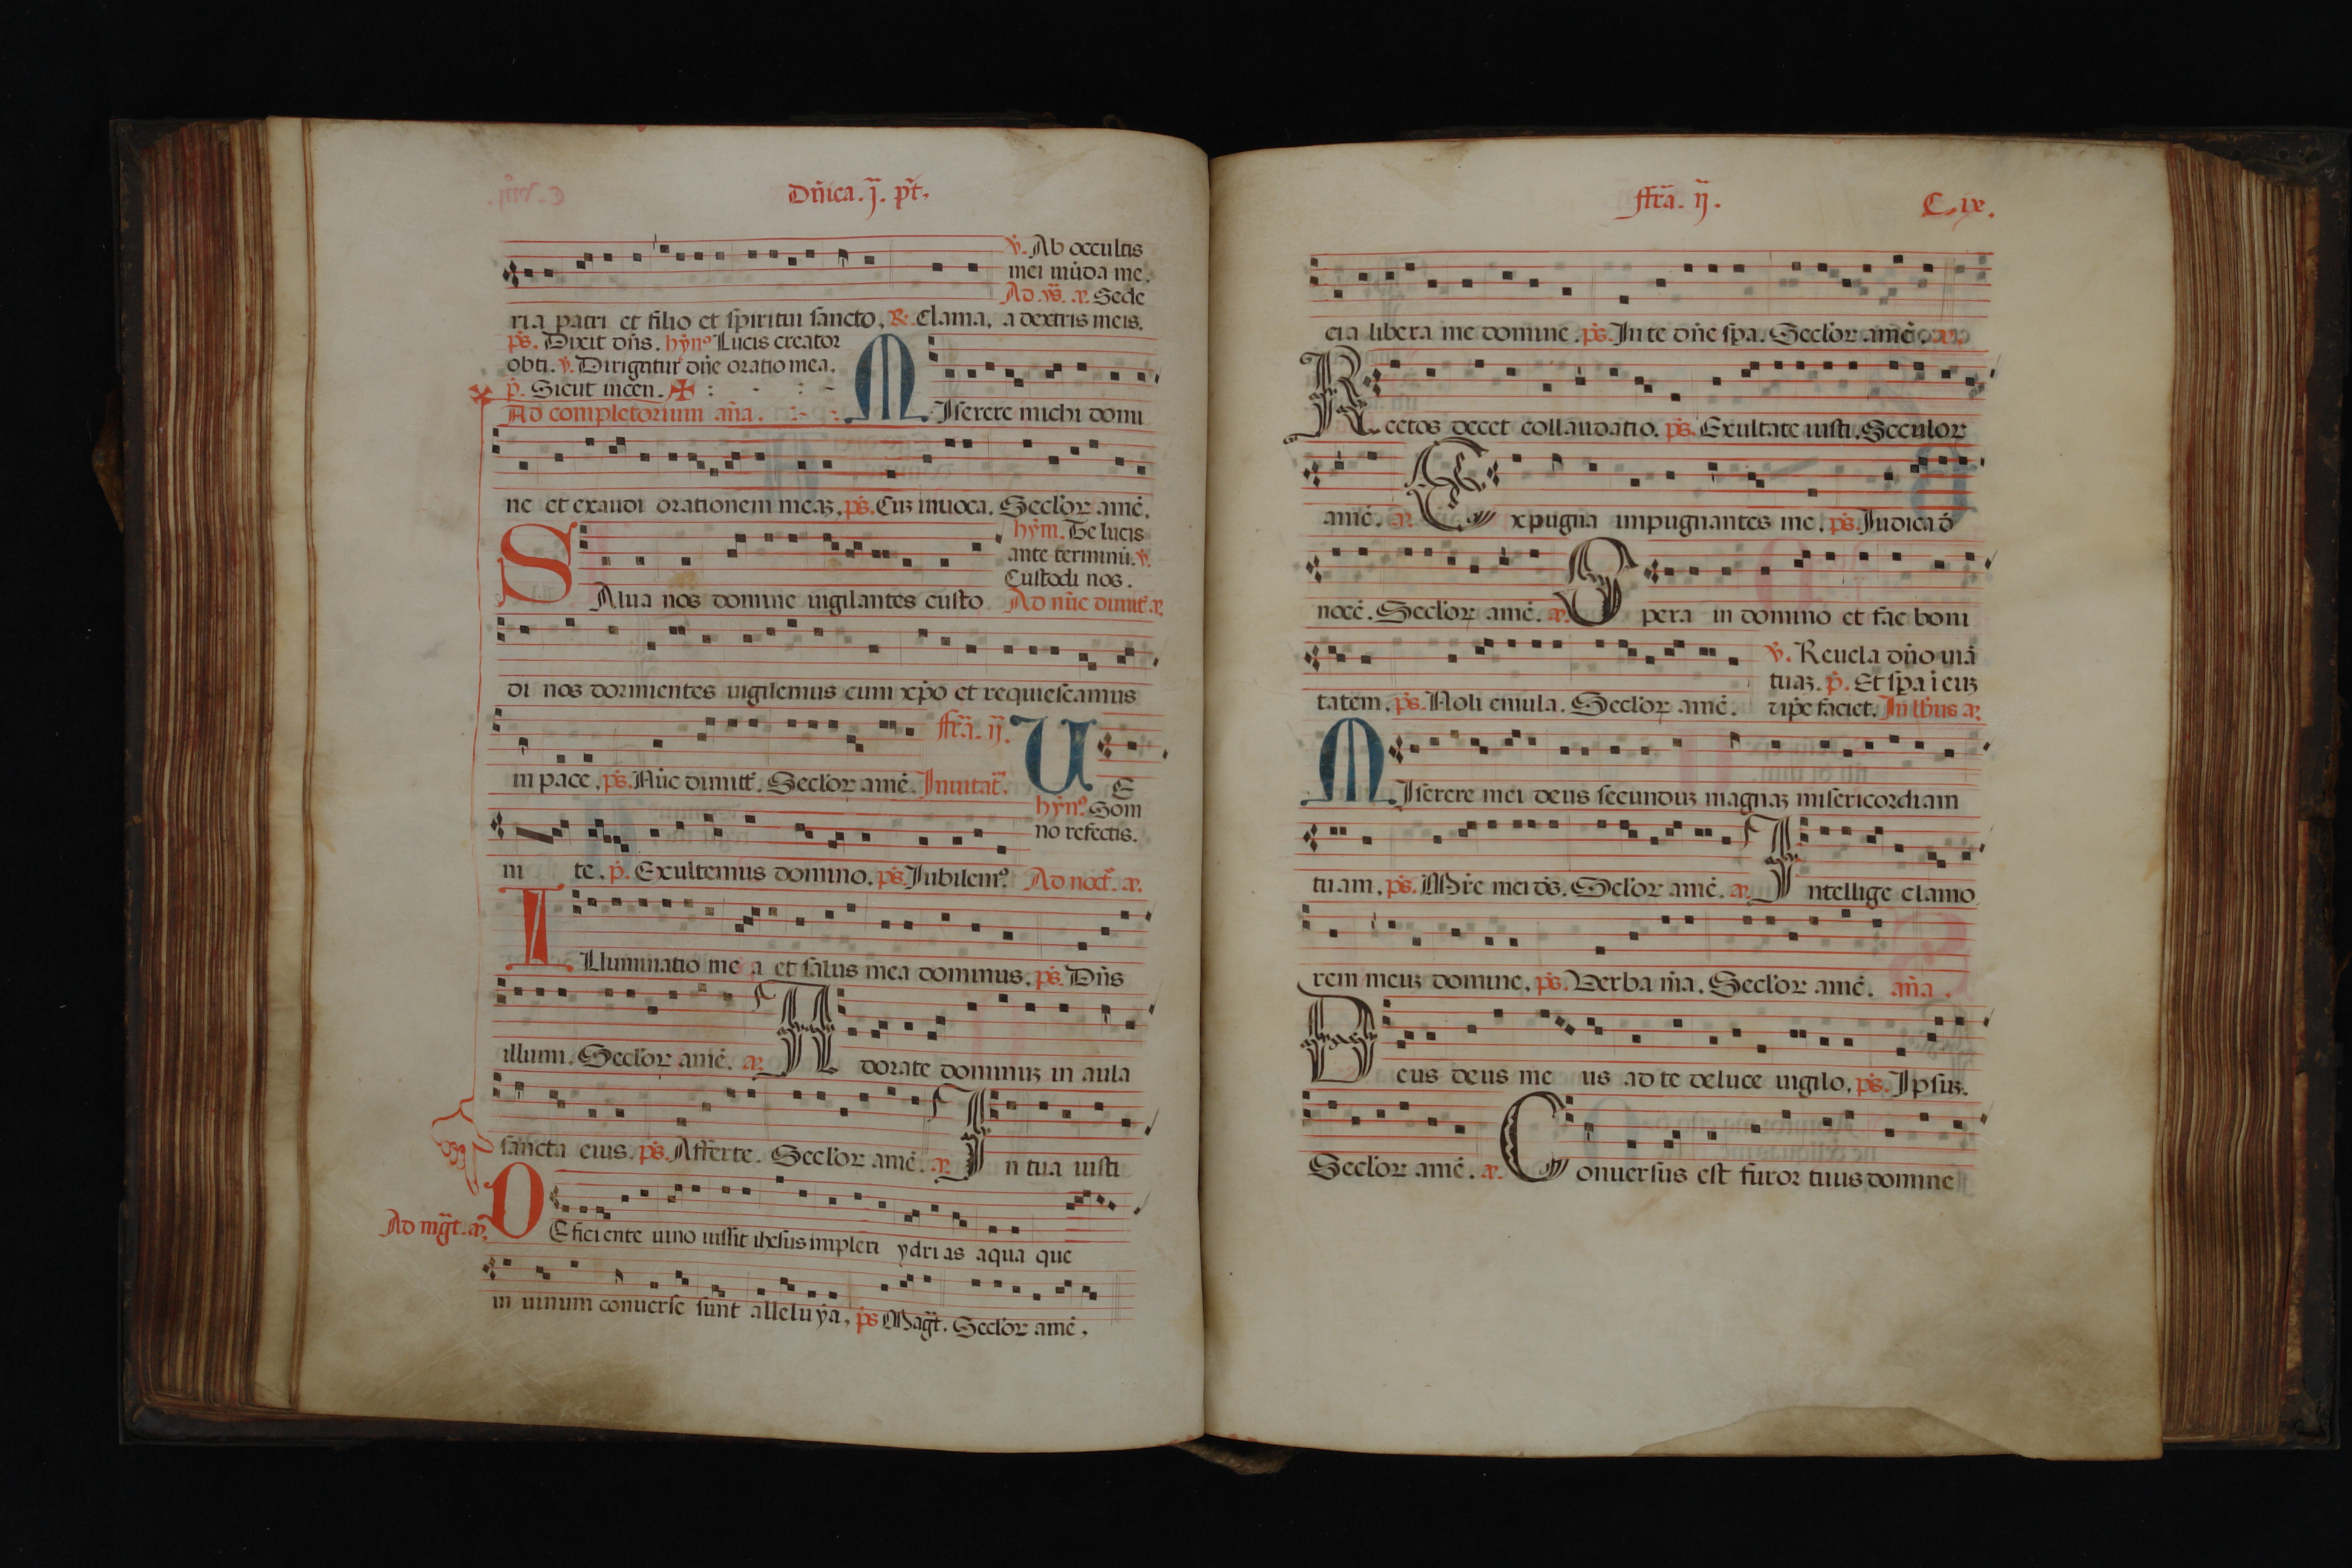 Dñica. j. p̃t.
ꝟ. Ab occultis
mei mũda me.
Ad ꝟ̃s. añ. Sede
ria patri et filio et spiritui sancto. ℞. Clama. a dextris meis.
p̃s. Dixit dñs. hỹnꝰ Lucis creator
obti. ꝟ. Dirigatur dñe oratio mea.
p̃. Sicut incen. ✠
Ad completorium aña. MIserere michi domi
ne et exaudi orationem meaꝫ. p̃s. Cuꝫ inuoca. Secl'oꝝ amẽ.
hỹm. Te lucis
ante terminũ. ꝟ.
Custodi nos.
SAlua nos domine uigilantes custo Ad nũc dimit̃ añ.
di nos dormientes uigilemus cum xp̃o et requiescamus
in pace. p̃s. Nũc dimitt̃. Secl'oꝝ amẽ. Inuitat̃. ffr̃a. ij. UE
hỹnꝰ. Som
no refectis.
ni te. p̃. Exultemus domino. p̃s. Iubilemꝰ. Ad noct̃. añ.
ILluminatio me a et salus mea dominus. p̃s. Dñs
illumi. Secl'oꝝ amẽ. añ. Adorate dominuꝫ in aula
sancta eius. p̃s. Afferte. Secl'oꝝ amẽ. añ. In tua iusti
Ad mg̃t. añ. DEficiente uino iussit ihesus impleri ydri as aqua que
in uinum conuerse sunt alleluya. p̃s Mag̃t. Secl'oꝝ amẽ.
ffr̃a. ij. C. ix.
cia libera me domine. p̃s. In te dñe sp̃a. Secl'oꝝ amẽ. añ.
Rectos decet collaudatio. p̃s. Exultate iusti. Seculoꝝ
amẽ. añ. Expugna impugnantes me. p̃s. Iudica d̃
nocẽ. Secl'oꝝ amẽ. añ. Spera in domino et fac boni
ꝟ. Reuela dño uiã
tuaꝫ. p̃. Et sp̃a i euꝫ
tatem. p̃s. Noli emula. Secl'oꝝ amẽ. τ ip̃e faciet. In l'bus añ.
MIserere mei deus secunduꝫ magnaꝫ misericordiam
tuam. p̃s. Mr̃e mei d̃s. Secl'oꝝ amẽ. añ. Intellige clamo
rem meuꝫ domine. p̃s. Verba m̃a. Secl'oꝝ amẽ. aña.
Deus deus me us ad te de luce uigilo. p̃s. Ipsuꝫ.
Secl'oꝝ amẽ. añ. Conuersus est furor tuus domine